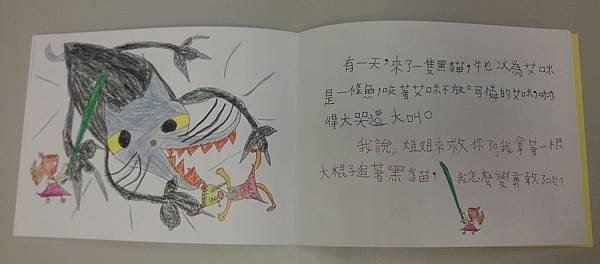 有一天，來了一隻黑貓，牠以為艾咪
是一條魚，咬著艾咪不放。可憐的艾咪，嚇
得大哭還大叫。
我說，姐姐來救你了，我拿著一根
大棍子追著黑貓，我怎麼變勇敢了呢？